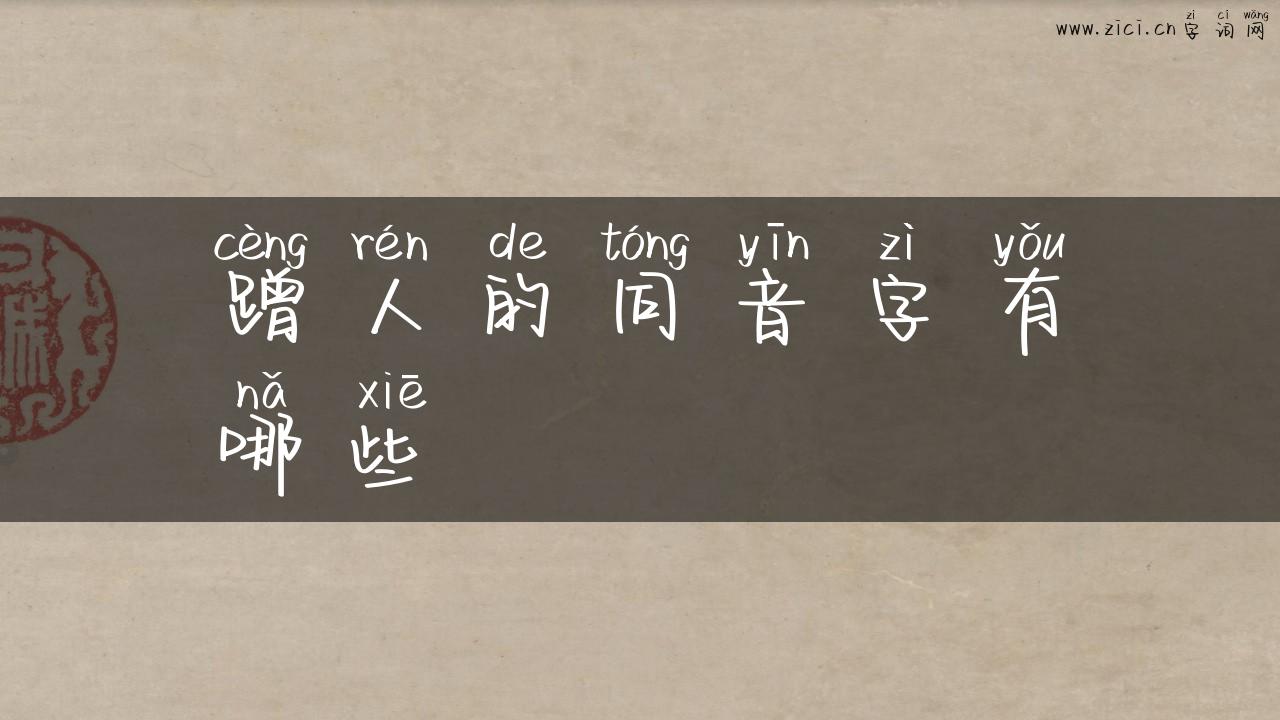 zì cí wǎng
www.zici.cn 字词网
cèng rén de tóng yīn zì yǒu
蹭人的同音字有
nǎ xiē
哪些